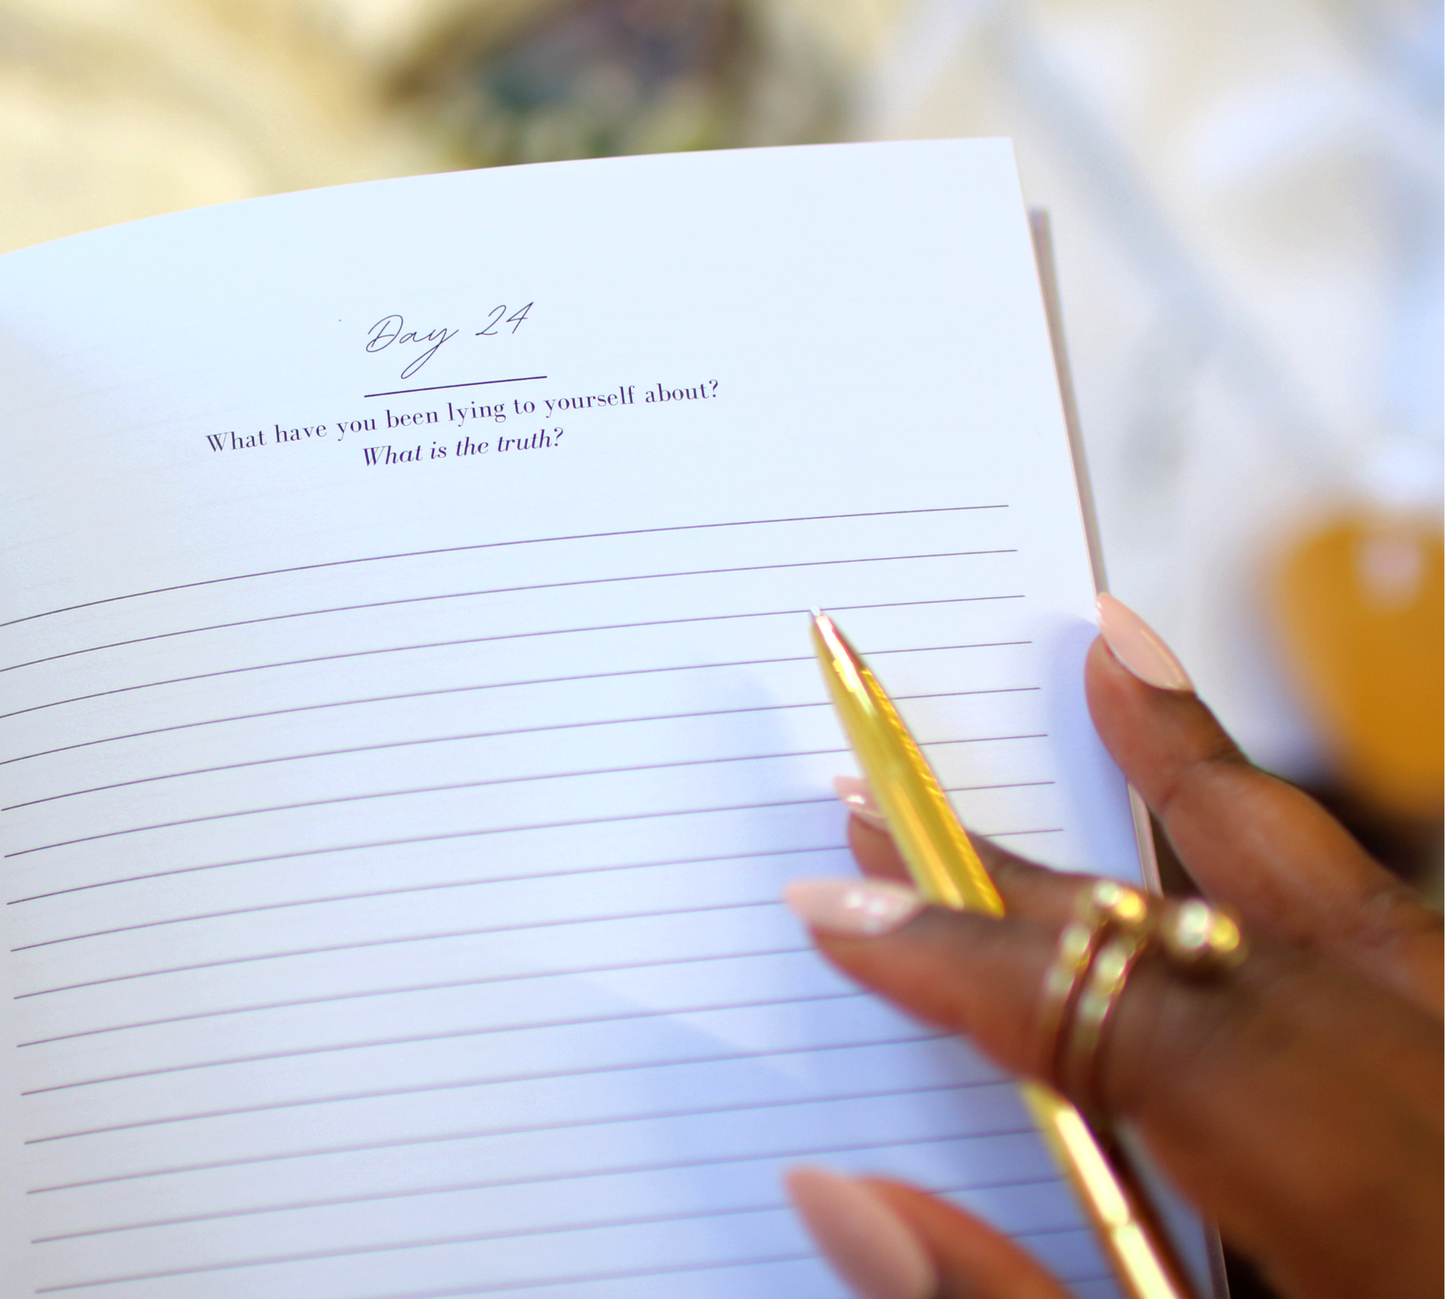 Day 24
What have you been lying to yourself about?
What is the truth?